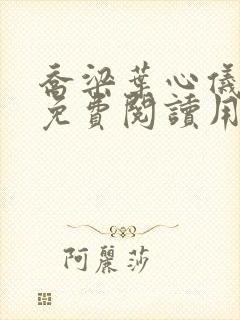 喬梁葉心儀
免費閱讀用
阿麗莎